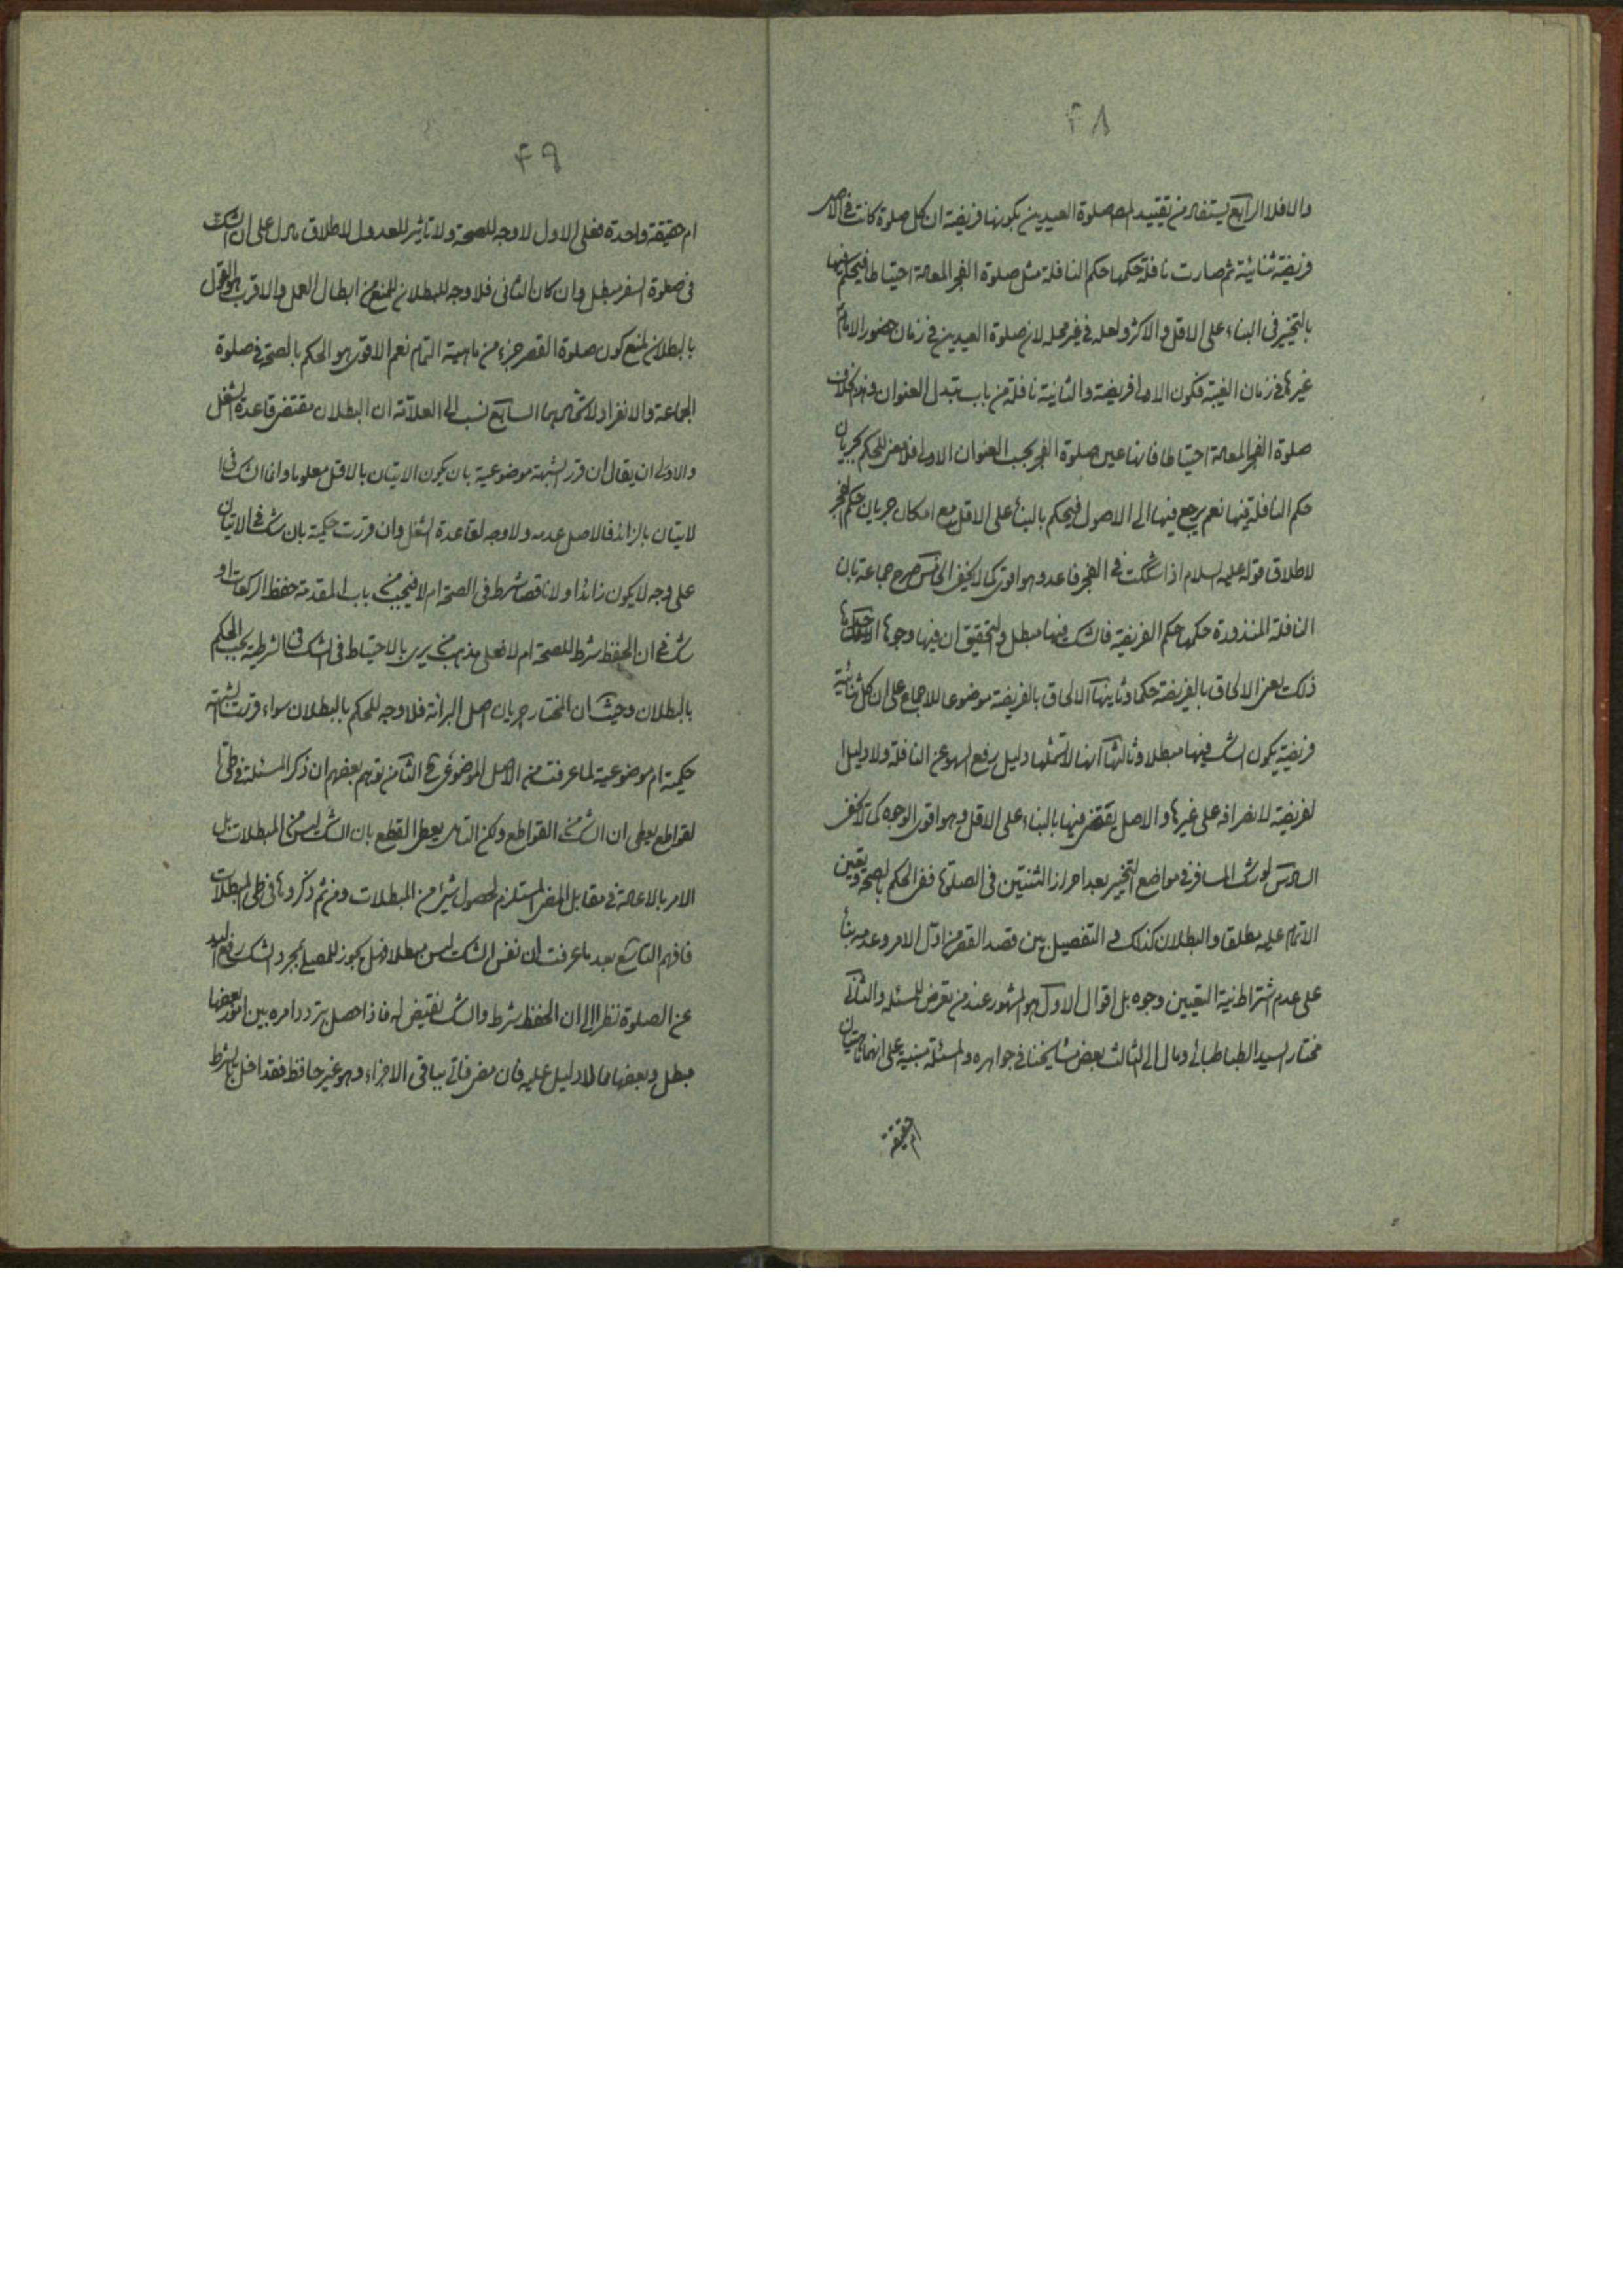 ۴۸
والا فلا الرابع يستفاد من تقييد المص صلوة العيدين بكونها فريضة ان كل صلوة كانت في الاصل
فريضة ثنائية ثم صارت نافلة حكمها حكم النافلة مثل صلوة الفجر المعادة احتياطا فيحكم فيها
بالتخيير في البناء على الاقل والاكثر ولعله في غير محله لان صلوة العيدين في زمان حضور الامام
غيرها في زمان الغيبة فتكون الاولى فريضة والثانية نافلة من باب تبدل العنوان وهذا بخلاف
صلوة الفجر المعادة احتياطا فانها عين صلوة الفجر بحسب العنوان الاولى فلا معنى للحكم بجريان
حكم النافلة فيها نعم يرجع فيها الى الاصول فيحكم بالبناء على الاقل مع امكان جريان حكم الفجر
لاطلاق قوله عليه السلام اذا شككت في الفجر فاعد وهو اقوى كما لا يخفى الخامس صرح جماعة بان
النافلة المنذورة حكمها حكم الفريضة فالشك فيها مبطل والتحقيق ان فيها وجوها احدها
ذلك اعنى الالحاق بالفريضة حكما وثانيها الالحاق بالفريضة موضوعا للاجماع على ان كل ثنائية
فريضة يكون الشك فيها مبطلا وثالثها انها لا تشملها دليل رفع السهو عن النافلة ولا دليل ا
لفريضة لانصرافه على غيرها والاصل يقتضى فيها بالبناء على الاقل وهو اقوى الوجوه كما لا يخفى
السادس لو شك المسافر في مواضع التخيير بعد احراز الثنتين في الصلوة ففى الحكم بالصحة وتعين
الاتمام عليه مطلقا والبطلان كذلك والتفصيل بين قصد القصر من اول الامر وعدمه بناء
على عدم اشتراط نية التعيين وجوه بل اقوال الاول هو المشهور عند من تعرض للمسئلة والثانى
مختار السيد الطباطبائى ومال الى الثالث بعض مشايخنا في جواهره والمسئلة مبنية على انهما ماهيتان
ام حقيقة
۴۹
ام حقيقة واحدة فعلى الاول لا وجه للصحة ولا تاثير للعدول لاطلاق ما دل على ان الشك
في صلوة السفر مبطل وان كان الثانى فلا وجه للبطلان للمنع من ابطال العمل والاقرب هو القول
بالبطلان لمنع كون صلوة القصر جزء من ماهية التمام نعم الاقوى هو الحكم بالصحة في صلوة
الجماعة والانفراد لاتحادهما السابع نسب الى العلامة ان البطلان مقتضى قاعدة الشغل
والاولى ان يقال ان قرر الشبهة موضوعية بان يكون الاتيان بالاقل معلوما وانما الشك في ا
لاتيان بالزائد فالاصل عدمه ولا وجه لقاعدة الشغل وان قررت حكمية بان شك في ان الاتيان
على وجه لا يكون زائدا ولا ناقصا شرط في الصحة ام لا فيجب من باب المقدمة حفظ الركعات او
شك في ان الحفظ شرط للصحة ام لا فعلى مذهب من يرى بالاحتياط في الشك في الشرطية يجب الحكم
بالبطلان وحيث ان المختار جريان اصل البرائة فلا وجه للحكم بالبطلان سواء قررت الشبهة
حكمية ام موضوعية لما عرفت من الاصل الموضوعى الثامن توهم بعضهم ان ذكر المسئلة في طى ا
لقواطع يعطى ان الشك من القواطع ولكن التامل يعطى القطع بان الشك ليس من المبطلات بل
الامر بالاعادة في مقابل المضى المستلزم لحصول شئ من المبطلات ومن ثم ذكروها في طى المبطلات
فافهم التاسع بعد ما عرفت ان نفس الشك ليس مبطلا فهل يجوز للمصلى بمجرد الشك رفع اليد
عن الصلوة نظرا الى ان الحفظ شرط والشك نقيض له فاذا حصل تردد امره بين امور بعضها
مبطل وبعضها مما لا دليل عليه فان مضى فاتى بباقى الاجزاء وهو غير حافظ فقد اخل بالشرط